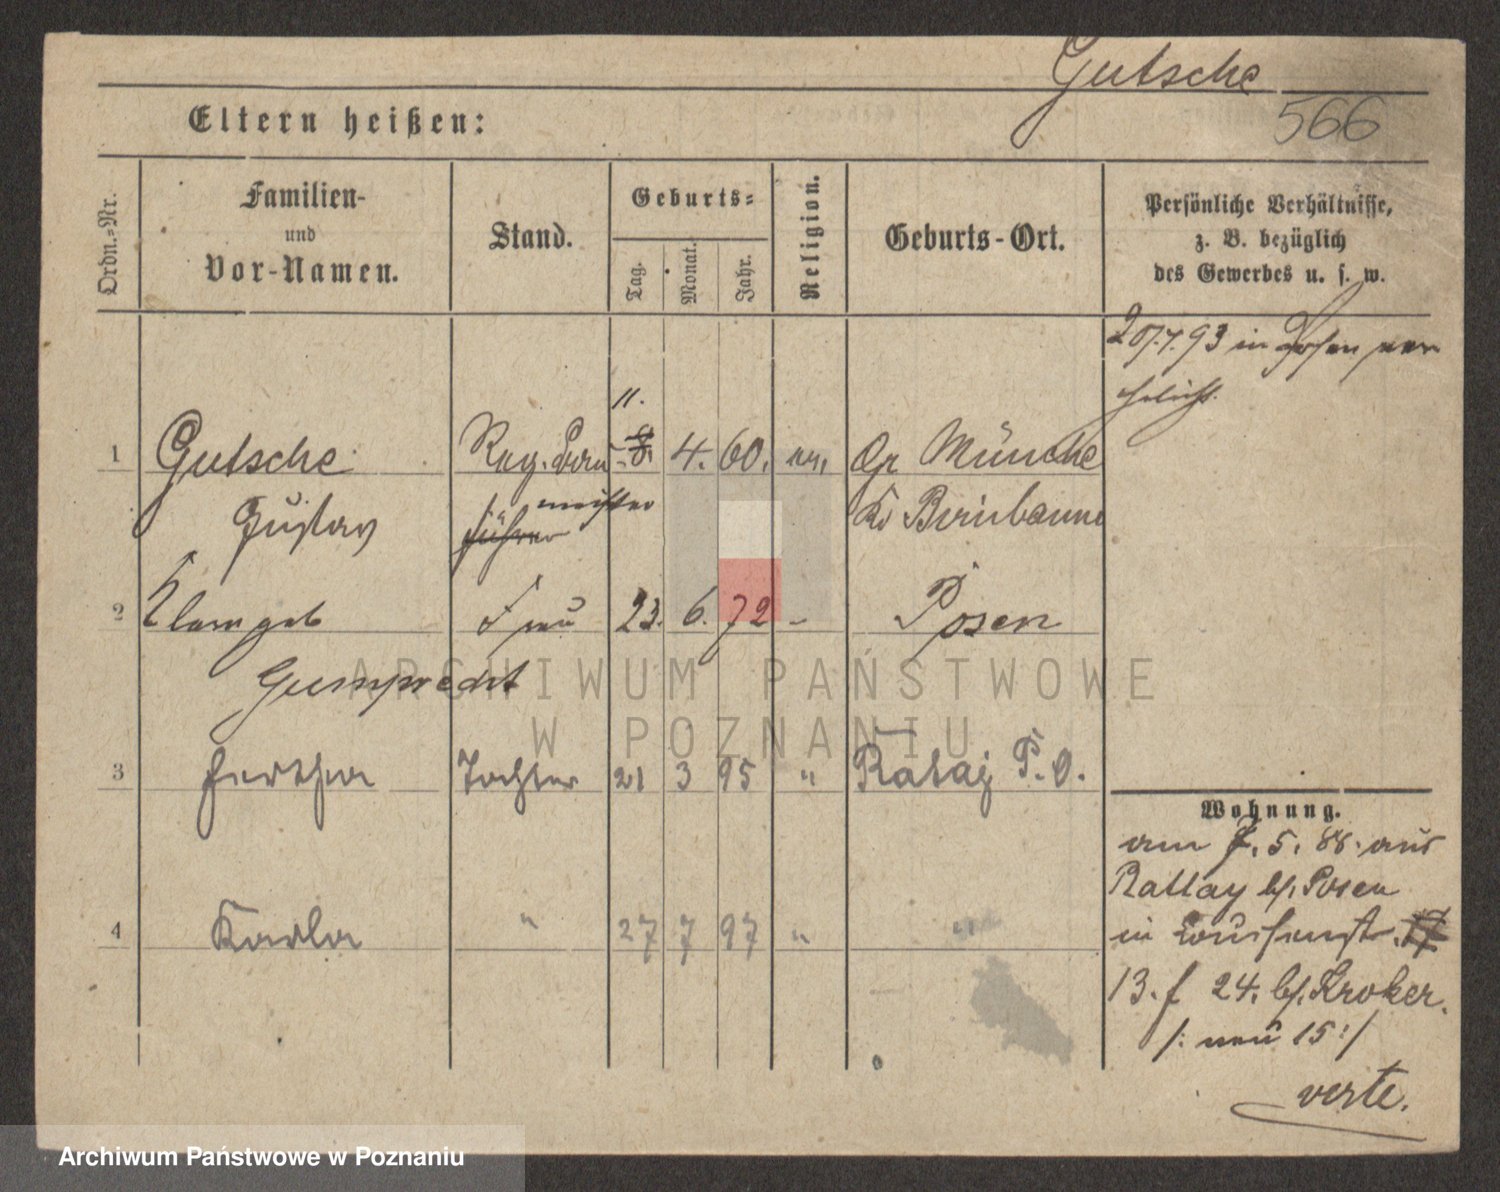 Gutsche
566
Eltern heißen:
Ordn.-Nr.
Familien-
und
Vor-Namen.
Stand.
Geburts-
Tag.
Monat.
Jahr.
Religion.
Geburts-Ort.
Persönliche Verhältnisse,
z. B. bezüglich
des Gewerbes u. s. w.
93 in Posen ver
ehelicht.
11.
1 Gutsche Reg. 8. 4. 60. Gr Münche
Gustav meister Kr Birnbaum
führer
2 geb Frau 23. 6. 72 - Posen
Gumprecht
3 Hertha Tochter 21 3 95 " Rataj P. O.
4 Karla " 27 7 97 " "
Wohnung.
am 7. 5. 88. aus
Rattay b/. Posen
in 17
13. f 24. b/. Kroker.
/: neu 15 :/
verte.
ARCHIWUM PAŃSTWOWE
W POZNANIU
Archiwum Państwowe w Poznaniu